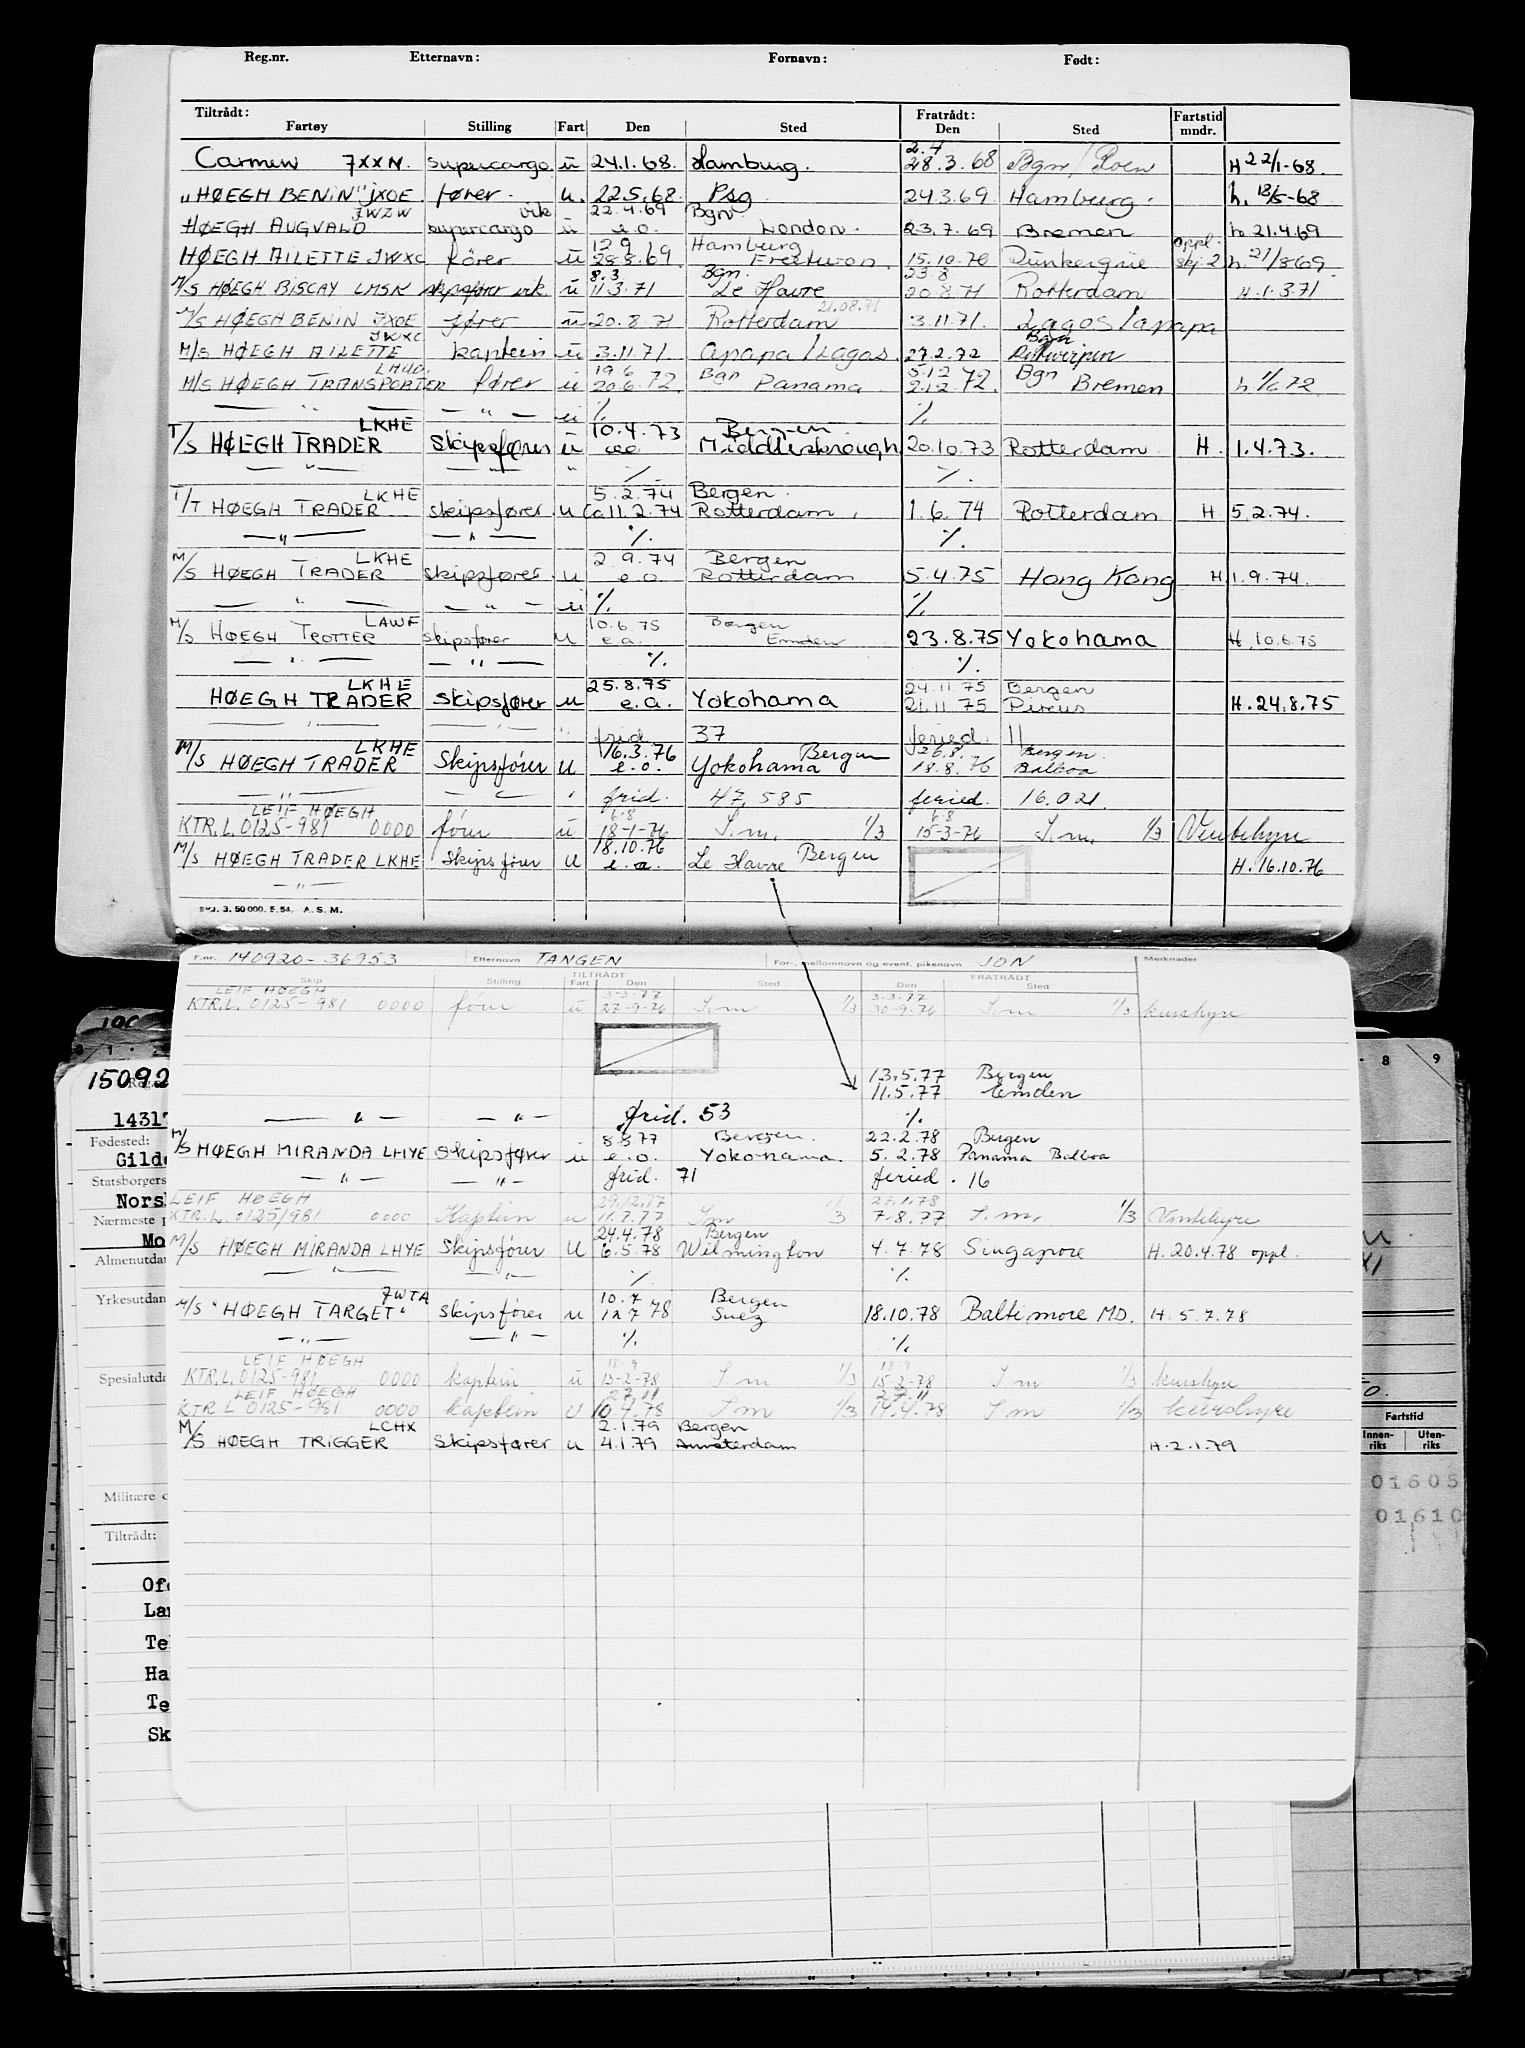 Reg.nr. Etternavn: Fornavn: Født:
Tiltrådt: Fratrådt: Fartstid
Fartøy Stilling Fart Den Sted Den Sted mndr.
2.4
Carmen 7XXN. supercargo ū 24.1.68. Hamburg. 28.3.68 Bgn/Roen H 22/1-68.
"HØEGH BENIN" JXOE fører. u. 22.5.68. Psg 24.3.69 Hamburg. h. 18/5-68
JWZW vik 22.4.69 Bgn.
HØEGH AUGVALD supercargo ū e.o. London. 23.7.69 Bremen h. 21.4.69
12.9 Hamburg oppl.
HØEGH AILETTE JWXC fører ū 28.8.69. Freetown. 15.10.70 Dunkerque skj. 2 h. 21/8 69.
8.3 Bgn. 23.8
M/S HØEGH BISCAY LMSK skipsfører vik ū 11.3.71 Le Havre 20.8.71 Rotterdam H.1.3.71
21.08.71
M/S HØEGH BENIN JXOE fører ū 20.8.71 Rotterdam 3.11.71. Lagos/apapa
JWXC Bgn
M/S HØEGH AILETTE kaptein ū 3.11.71 Apapa/Lagos. 27.2.72 Antwerpen
LHUD. 19.6 Bgn 5.12 Bgn
M/S HØEGH TRANSPORTER fører ū 20.6.72. Panama. 2.12.72. Bremen h. 1/6 72
— " — — " — ū % %
LKHE 10.4.73 Bergen
T/S HØEGH TRADER skipsfører ū ca Middlesbrough 20.10.73 Rotterdam H. 1.4.73.
— " — — " — " % %
LKHE 5.2.74 Bergen.
T/T HØEGH TRADER skipsfører u ca 11.2.74 Rotterdam, 1.6.74 Rotterdam H 5.2.74.
— " — — " — % %
LKHE 2.9.74 Bergen
M/S HØEGH TRADER skipsfører u e.o. Rotterdam 5.4.75 Hong Kong H 1.9.74.
— " — — " — ū % %
LAWF 10.6.75 Bergen
M/S HØEGH TROTTER skipsfører u e.a. Emden 23.8.75 Yokohama H. 10.6.75
— " — — " — % %
LKHE 25.8.75 24.11.75 Bergen
HØEGH TRADER skipsfører u e.a. Yokohama 21.11.75 Pireus H. 24.8.75
— " — " " frid. 37 feried. 11
LKHE 16.3.76 Bergen 26.8. Bergen.
M/S HØEGH TRADER Skipsfører u e.o. Yokohama 18.8.76 Balboa
— " — — " — " frid. 47,585 feried. 16.021
LEIF HØEGH 6.8 6.8
KTR.L. 0125-981 0000 fører ū 18-1-76 S.m. 1/3 15-3-76 S.m. 1/3 Ventehyre
18.10.76
M/S HØEGH TRADER LKHE Skipsfører u e.a. Le Havre Bergen H. 16.10.76
— " —
3. 50 000. 5. 54. A. S. M.
F.nr. 140920-36953 Etternavn TANGEN For-, mellomnavn og event. pikenavn JON Merknader
TILTRÅDT FRATRÅDT
Skip Stilling Fart Den Sted Den Sted
LEIF HØEGH 3-3-77 3.3.77
KTR.L. 0125-981 0000 fører ū 27-9-76 S.m 1/3 30-9-76 S.m 1/3 kurshyre
13.5.77 Bergen
11.5.77 Emden
— " — — " — frid. 53 %
8.8.77 Bergen. 22.2.78 Bergen
M/S HØEGH MIRANDA LHYE skipsfører u e.o. Yokohama. 5.2.78 Panama Balboa
— " — — " — frid. 71 feried. 16
LEIF HØEGH 29.12.77 27.1.78
KTR.L. 0125/981 0000 Kaptein u 11.7.77 S.m 1/3 7-8.77 S.m. 1/3 Ventehyre
24.4.78 Bergen
M/S HØEGH MIRANDA LHYE Skipsfører u 6.5.78 Wilmington 4.7.78 Singapore H. 20.4.78 oppl.
— " — — " — % %
JWTA 10.7 Bergen
M/S "HØEGH TARGET" skipsfører u 12.7 78 Suez 18.10.78 Baltimore MD. H. 5.7.78
— " — — " — % %
LEIF HØEGH 18-9 18-9
KTR.L. 0125-981 0000 kaptein ū 13-2-78 S m 1/3 15-2-78 S m 1/3 kurshyre
LEIF HØEGH 27.11 27.11
KTR L 0125-981 0000 kaptein u 10.4.78 S m 1/3 14.4.78 S m 1/3 kurshyre
LCHX 2.1.79 Bergen
M/S HØEGH TRIGGER skipsfører u 4.1.79 Amsterdam H. 2.1.79
8 9
15092
1431
Fødested:
Gild
Statsborgers
Nors
Nærmeste p
Mo
Almenutda
Yrkesutdan
Spesialutda
Fartstid
Innen-riks Uten-riks
Militære
01605
01610
Tiltrådt:
Ofo
Lar
Te
Ha
Te
Sk